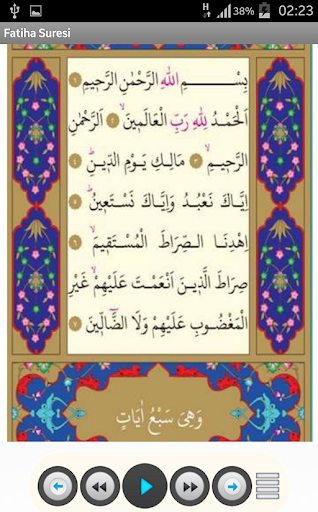 H 38% 02:23
Fatiha Suresi
بِسْمِ اللهِ الرَّحْمٰنِ الرَّحٖيمِ ١
اَلْحَمْدُ لِلّٰهِ رَبِّ الْعَالَمٖينَۙ ٢ اَلرَّحْمٰنِ
الرَّحٖيمِۙ ٣ مَالِكِ يَوْمِ الدّٖينِۜ ٤
اِيَّاكَ نَعْبُدُ وَاِيَّاكَ نَسْتَعٖينُۜ ٥
اِهْدِنَا الصِّرَاطَ الْمُسْتَقٖيمَۙ ٦
صِرَاطَ الَّذٖينَ اَنْعَمْتَ عَلَيْهِمْۙ غَيْرِ
الْمَغْضُوبِ عَلَيْهِمْ وَلَا الضَّٓالّٖينَ ٧
وَهِىَ سَبْعُ اٰيَاتٍ